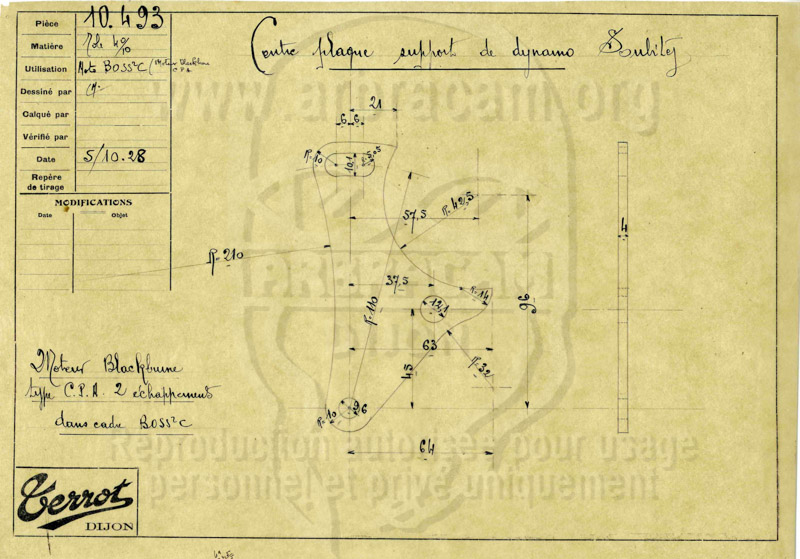 Pièce 10.493
Matière
Utilisation Moto BOSS²C (Moteur Blackburne
C.P.A.
Dessiné par
Calqué par
Vérifié par
Date 5/10.28
Repère
de tirage
MODIFICATIONS
Date Objet
Contre plaque support de dynamo
www.arpracam.org
21
6 6
R.10
10,1
R.5,05
57,5
R.42,5
R.210
37,5
R.14
12,1
R.110
96
4
63
45
R.32
R.10
9,6
64
Moteur Blackburne
type C.P.A. 2 échappements
dans cadre BOSS²C
Reproduction autorisée pour usage
personnel et privé uniquement
Terrot
DIJON